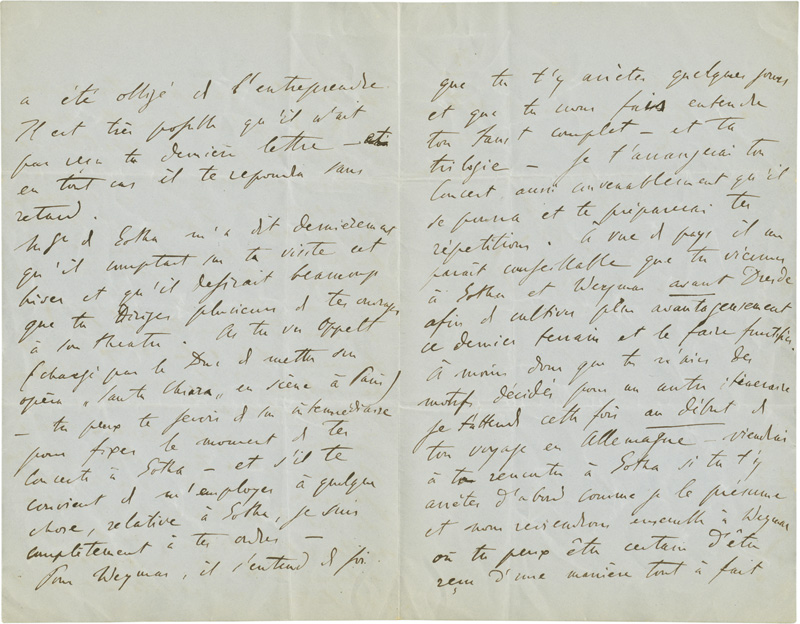 a été obligé d l'entreprendre.
Il est très possible qu'il n'ait
pas reçu ta dernière lettre —
en tout cas il te repondra sans
retard.
d Gotha m'a dit dernièrement
qu'il comptait sur ta visite cet
hiver et qu'il desirait beaucoup
que tu diriges plusieurs d tes ouvrages
à son theatre. As tu vu Oppelt
(chargé par le Duc d mettre son
opéra „Santa Chiara„ en scène à Paris)
— tu peux te servir d son intermédiaire
pour fixer le moment d tes
Concerts à Gotha — et s'il te
convient d m'employer à quelque
chose, relative à Gotha, je suis
complètement à tes ordres —
Pour Weymar, il s'entend d soi
que tu t'y arrêtes quelques jours
et que tu nous fais entendre
ton Faust complet — et ta
trilogie — Je t'arrangerai ton
Concert aussi convenablement qu'il
se pourra et te préparerai tes
répétitions. A vue d pays il me
paraît conseillable que tu viennes
à Gotha et Weymar avant Dresde
afin d cultiver plus avantageusement
ce dernier terrain et le faire fructifier.
À moins donc que tu n'aies des
motifs décidés pour un autre itinéraire
je t'attends cette fois au début d
ton voyage en Allemagne — viendrai
à ta rencontre à Gotha si tu t'y
arrêtes d'abord comme je le présume
et nous reviendrons ensemble à Weymar
où tu peux être certain d'être
reçu d'une manière tout à fait